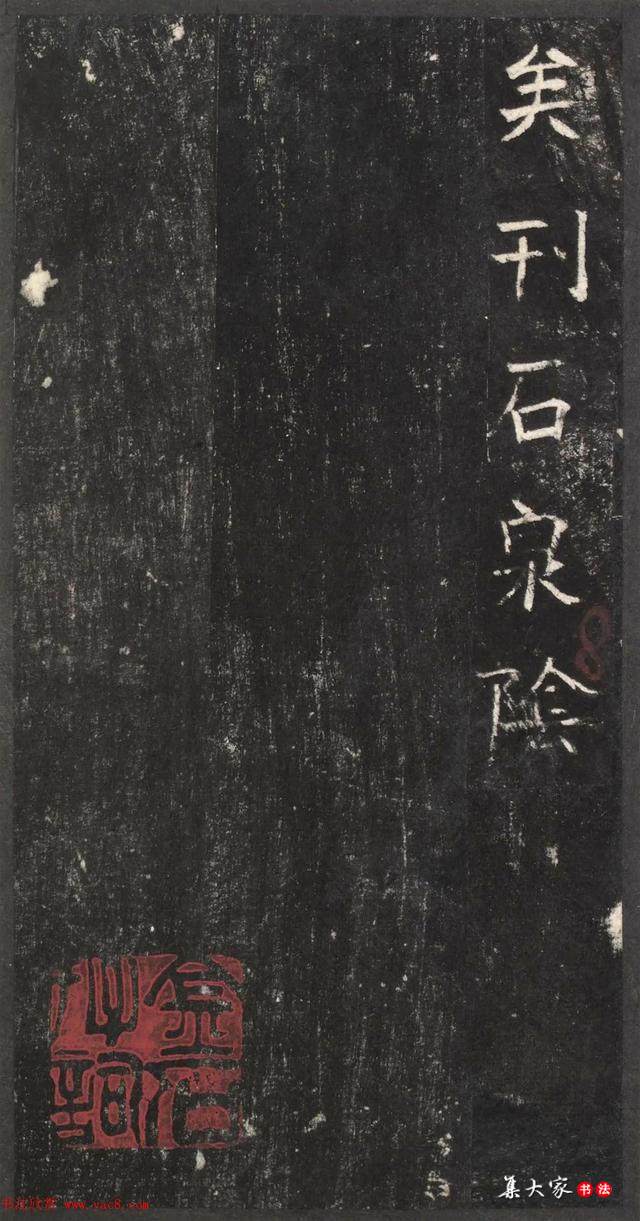 矣刊石泉陰
集大家 书法
书法欣赏 www.yac8.com